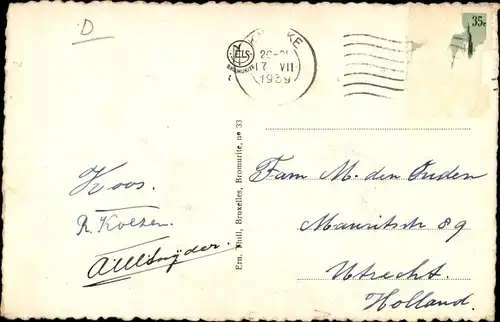 D
35c
ELS
BROMURITE
20-21
17 VII
1939
Koos.
R. Kolken.
Fam M. den Ouden
Mauritsstr 89
Utrecht.
Holland.
Ern. Thill, Bruxelles, Bromurite, nº 33